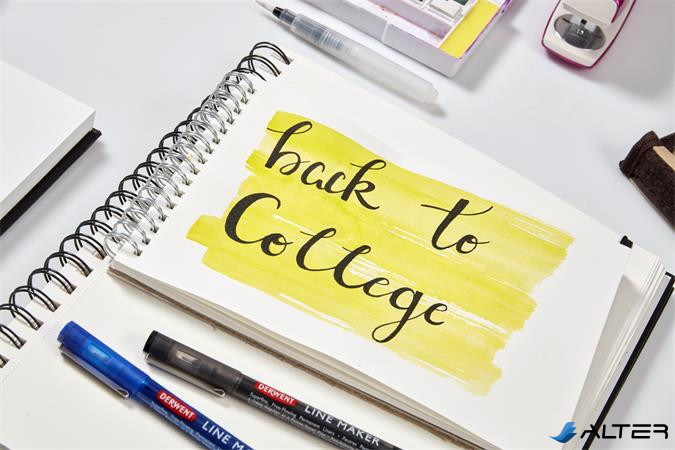 back to
College
DERWENT
LINE MAKER
DERWENT
LINE MAKER
ALTER